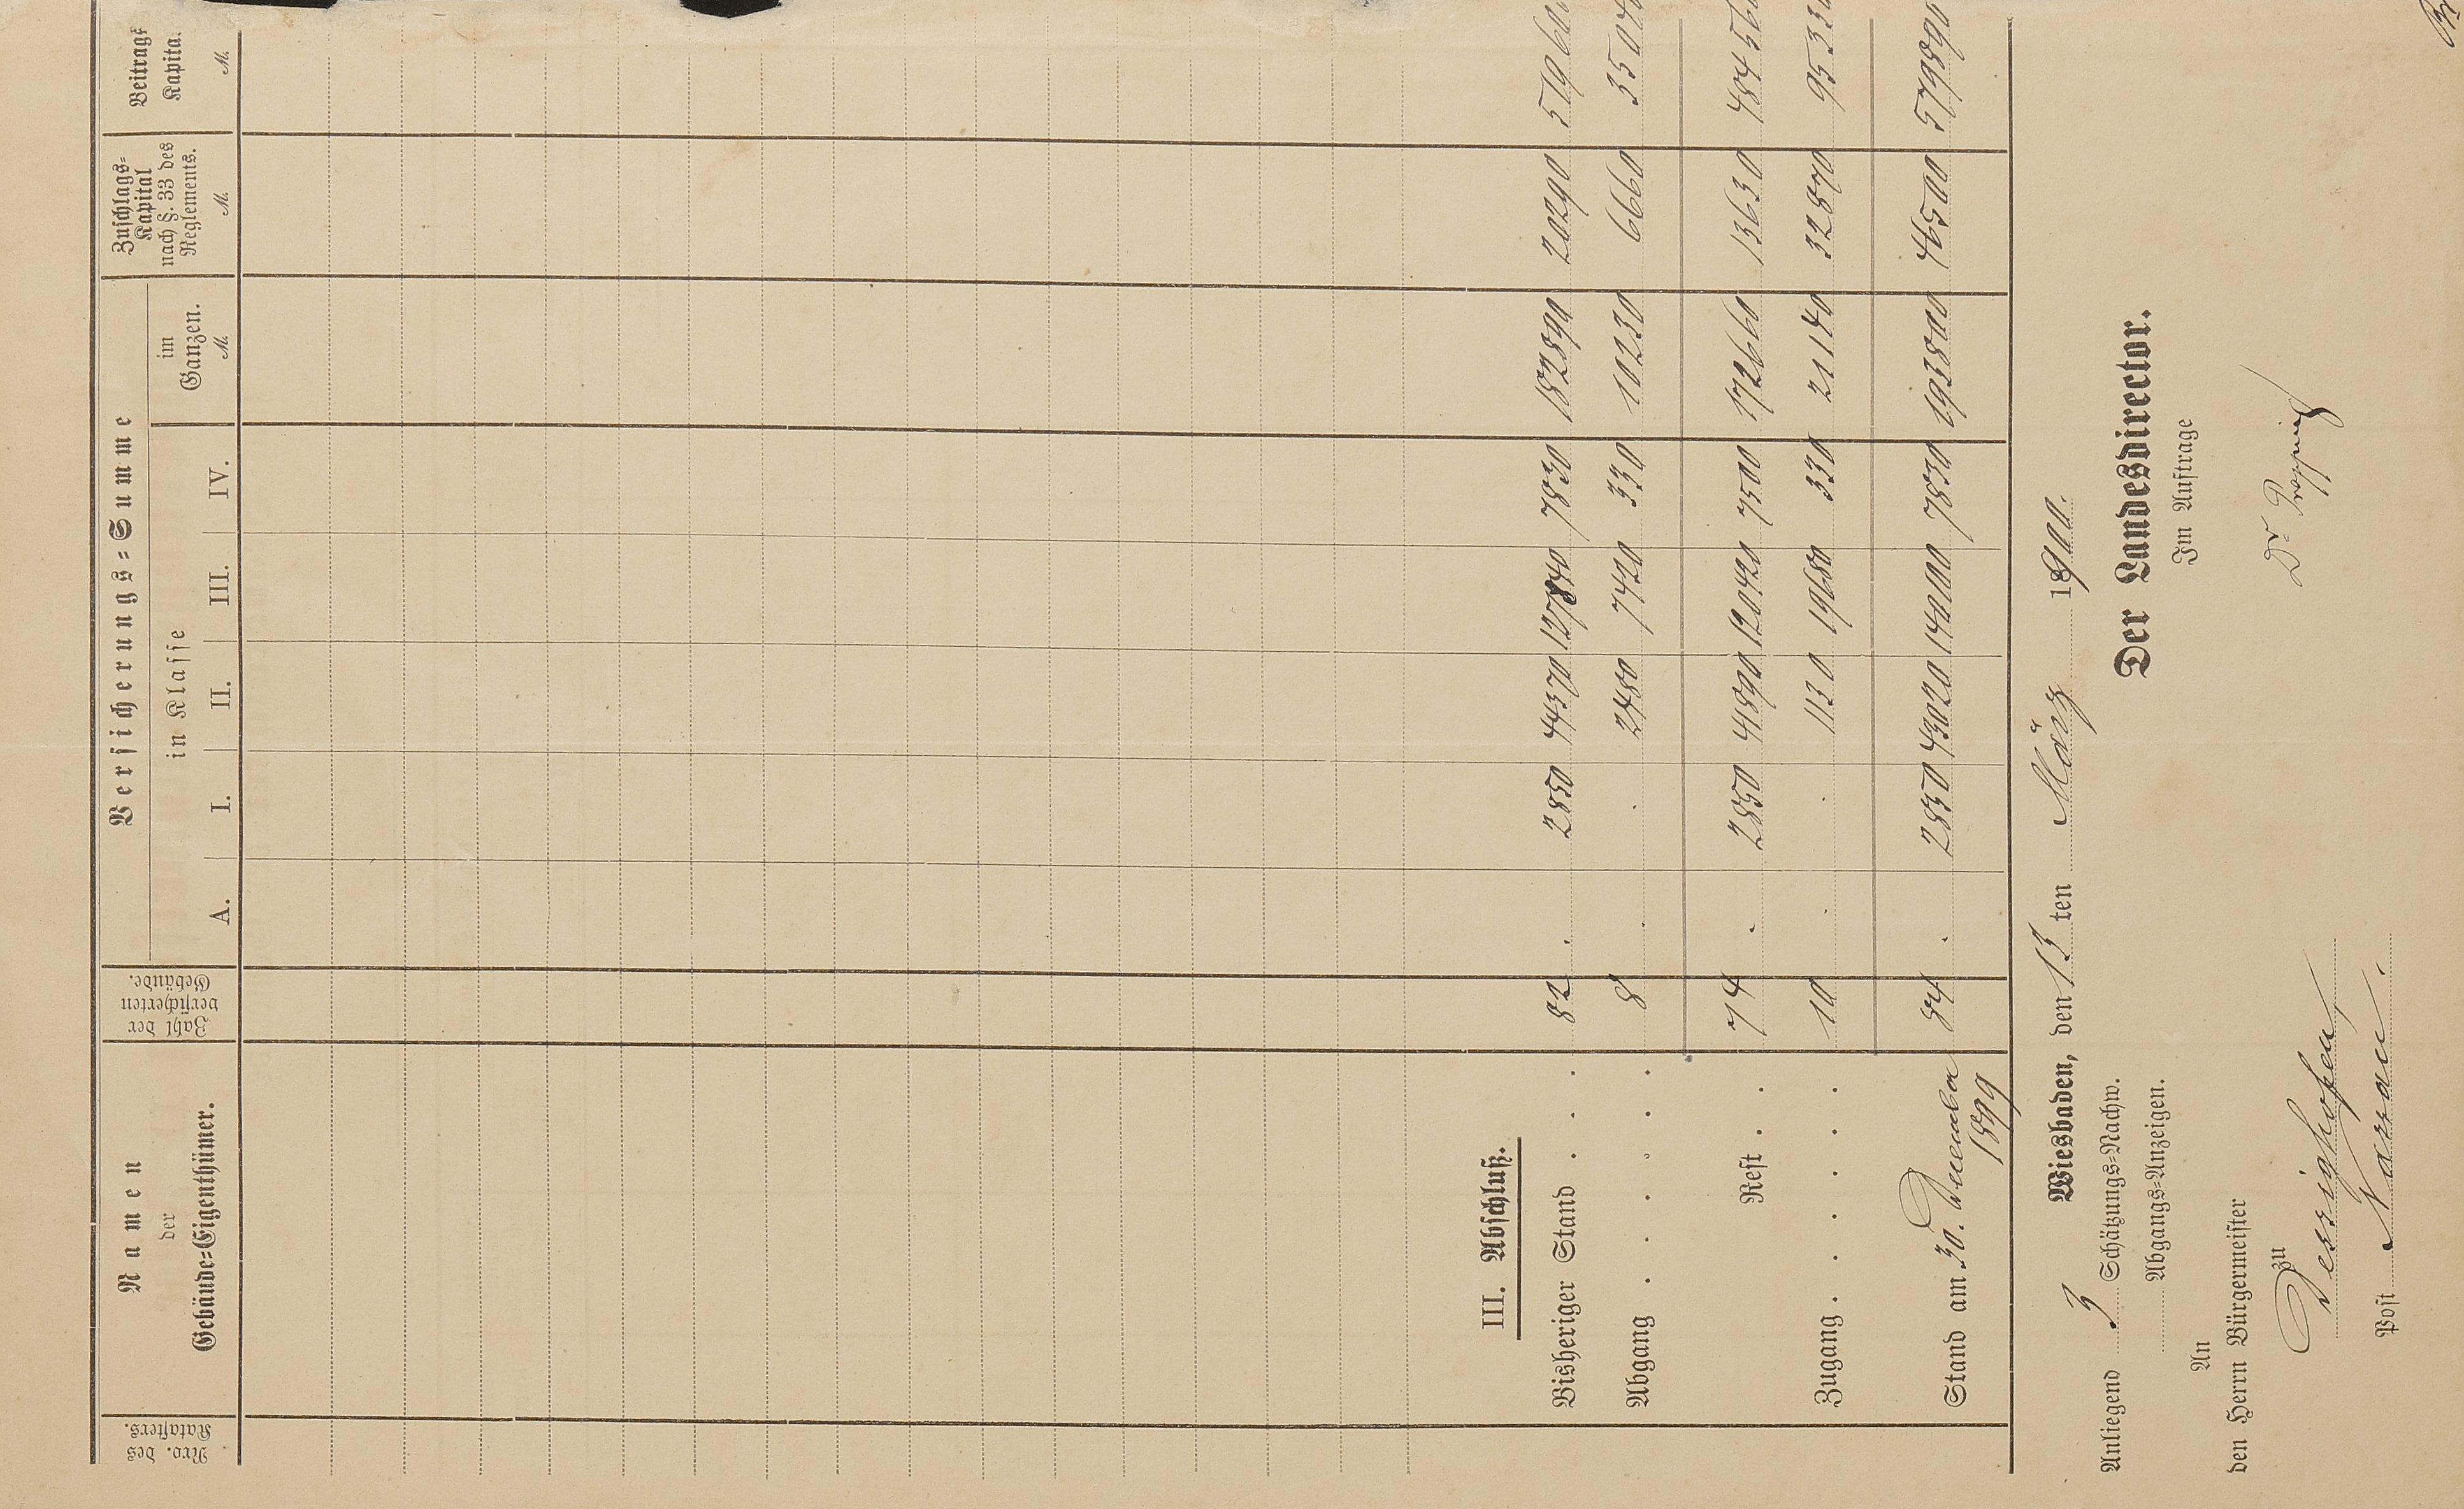 Nro. des
Katasters.
Namen
der
Gebäude=Eigenthümer.
Zahl der
versicherten
Gebäude.
Versicherungs=Summe
in Klasse
A. I. II. III. IV.
im
Ganzen.
M.
Zuschlags=
Kapital
nach §. 33 des
Reglements.
M.
Beitrags
Kapita
M.
III. Abschluß.
Bisheriger Stand . . . 82 . 2850 44370 127840 7830 182890 20290
Abgang . . . . . 8 . . 2480 7420 330 10230 6660
Rest . . 74 . 2850 41890 120420 7500 172660 13630
Zugang . . . . . 10 . . 1130 19680 330 21140 32870
Stand am 30. Dezember 84 . 2850 43020 140100 7830 193800 46500 579890
1899
Wiesbaden, den 13ten März 1890.
Anliegend 3 Schätzungs=Nachw.
Abgangs=Anzeigen.
Der Landesdirector.
Im Auftrage
Dr.
An
den Herrn Bürgermeister
zu
Dessighofen,
Post Nassau.